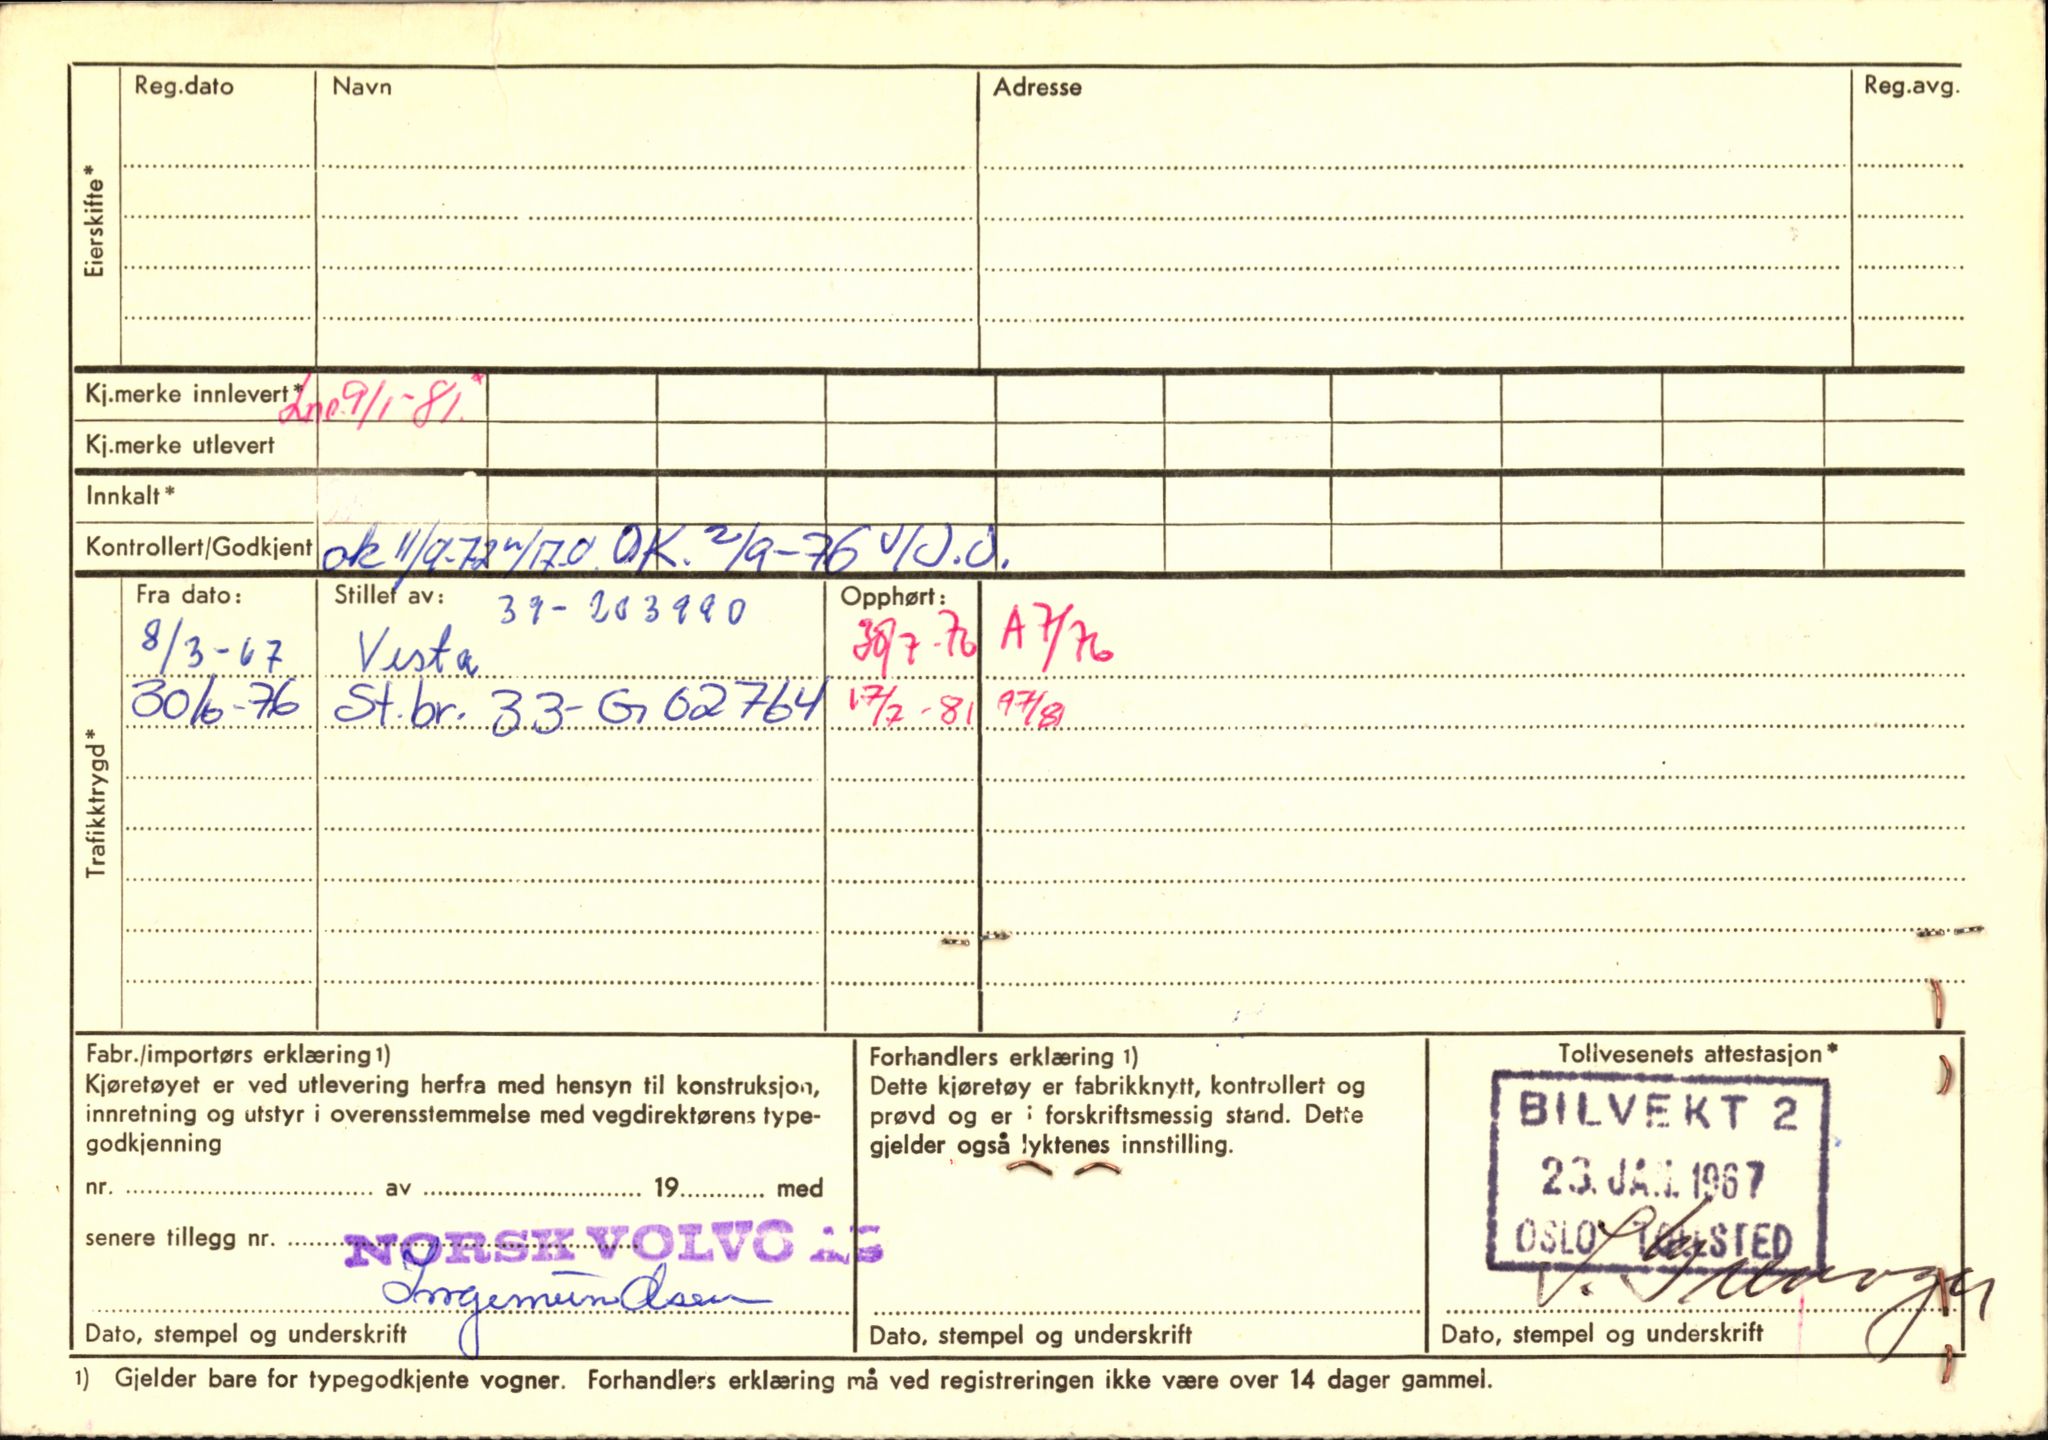 Reg.dato Navn Adresse Reg.avg.
Eierskifte*
Kj.merke innlevert* 9/1-81.*
Kj.merke utlevert
Innkalt*
Kontrollert/Godkjent ok 11/9-72 OK. 2/9-76 v/J.J.
Trafikktrygd*
Fra dato: Stillet av: 39-203990 Opphørt:
8/3-67 Vesta 30/7-76 A7/76
30/6-76 St.br. 33-G 02764 17/2-81 A7/81
Fabr./importørs erklæring 1)
Kjøretøyet er ved utlevering herfra med hensyn til konstruksjon,
innretning og utstyr i overensstemmelse med vegdirektørens type-
godkjenning
nr. .......... av .......... 19.......... med
senere tillegg nr. ..........
NORSK VOLVO AS
Ingemundsen
Dato, stempel og underskrift
Forhandlers erklæring 1)
Dette kjøretøy er fabrikknytt, kontrollert og
prøvd og er i forskriftsmessig stand. Dette
gjelder også lyktenes innstilling.
Dato, stempel og underskrift
Tollvesenets attestasjon*
BILVEKT 2
23. JAN. 1967
OSLO TOLLSTED
Dato, stempel og underskrift
1) Gjelder bare for typegodkjente vogner. Forhandlers erklæring må ved registreringen ikke være over 14 dager gammel.